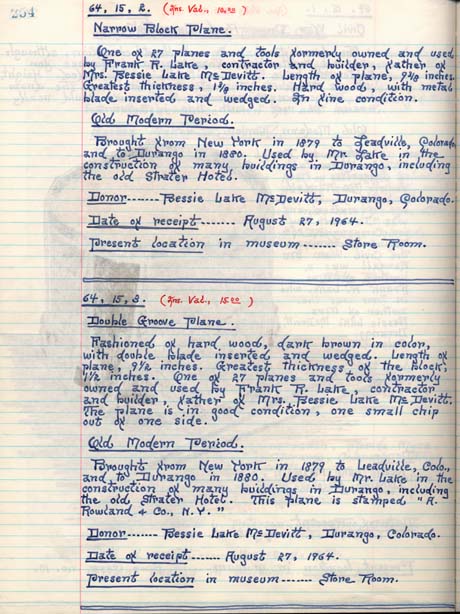 264
64, 15, 2. (Ins. Val., 10.00)
Narrow Block Plane.
One of 27 planes and tools formerly owned and used
by Frank R. Lake, contractor and builder, father of
Mrs. Bessie Lake McDevitt. Length of plane, 9 inches.
Greatest thickness, 1 inches. Hard wood, with metal
blade inserted and wedged. In fine condition.
Old Modern Period.
Brought from New York in 1879 to Leadville, Colorado,
and to Durango in 1880. Used by Mr. Lake in the
construction of many buildings in Durango, including
the old Strater Hotel.
Donor------- Bessie Lake McDevitt, Durango, Colorado.
Date of receipt------- August 27, 1964.
Present location in museum------- Store Room.
64, 15, 3. (Ins. Val., 15.00)
Double Groove Plane.
Fashioned of hard wood, dark brown in color,
with double blade inserted and wedged. Length of
plane, 9 1/2 inches. Greatest thickness of the block,
1 1/2 inches. One of 27 planes and tools formerly
owned and used by Frank R. Lake, contractor
and builder, father of Mrs. Bessie Lake McDevitt.
The plane is in good condition, one small chip
out of one side.
Old Modern Period.
Brought from New York in 1879 to Leadville, Colo.,
and to Durango in 1880. Used by Mr. Lake in the
construction of many buildings in Durango, including
the old Strater Hotel. This plane is stamped "A.
Rowland & Co., N.Y."
Donor------- Bessie Lake McDevitt, Durango, Colorado.
Date of receipt------- August 27, 1964.
Present location in museum------- Store Room.